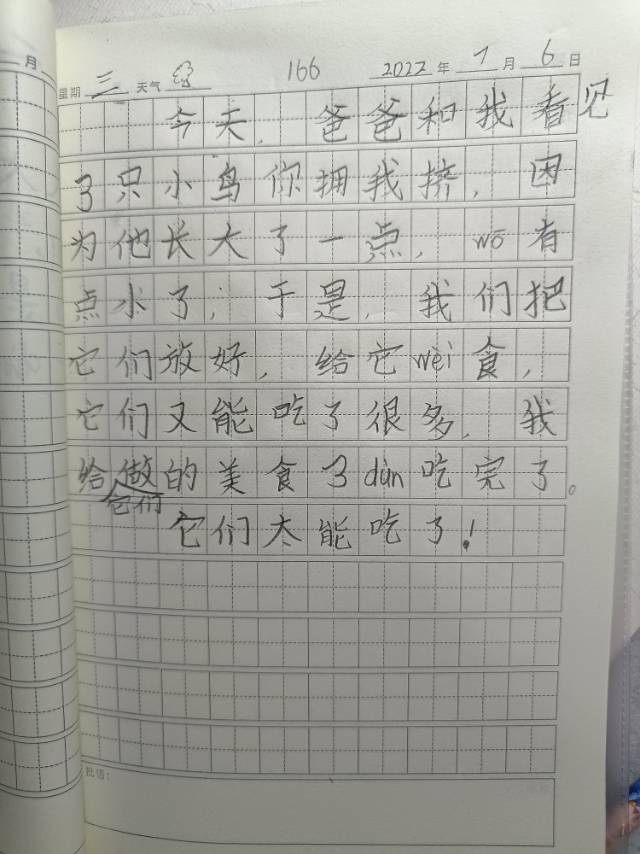 月
星期 三 天气 166 2022 年 7 月 6 日
今天，爸爸和我看见
了只小鸟你拥我挤，因
为他长大了一点，wō有
点小了，于是，我们把
它们放好，给它wèi食，
它们又能吃了很多，我
给它们做的美食3dùn吃完了。
它们太能吃了！
批语：